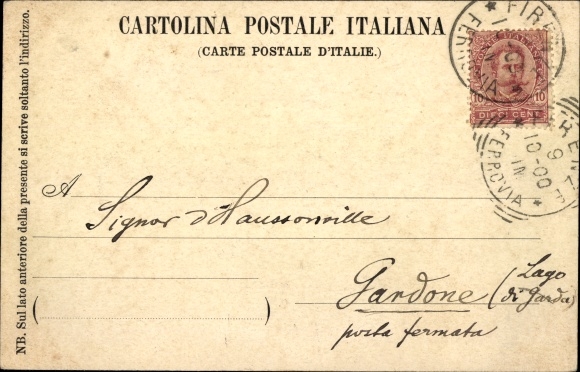 CARTOLINA POSTALE ITALIANA
(CARTE POSTALE D'ITALIE.)
NB. Sul lato anteriore della presente si scrive soltanto l'indirizzo.
10 10
DIECI CENT.
FERROVIA
FIRENZE
9
10-00
IN
FERROVIA
A
Signor d'Haussonville
Gardone (Lago
di Garda)
posta fermata